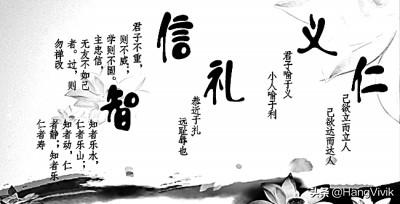 仁
己欲立而立人
己欲达而达人
义
君子喻于义
小人喻于利
礼
恭近于扎
远耻辱也
信
君子不重，
则不威；
学则不固。
主忠信，
无友不如己
者。过，则
勿禅改
智
知者乐水，
仁者乐山；
知者动，仁
者静；知者乐
仁者寿
头条 @HangVivik